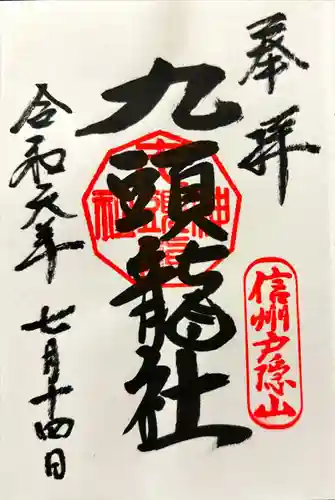 奉拝
信州戸隠山
九頭龍社
令和元年
七月十四日